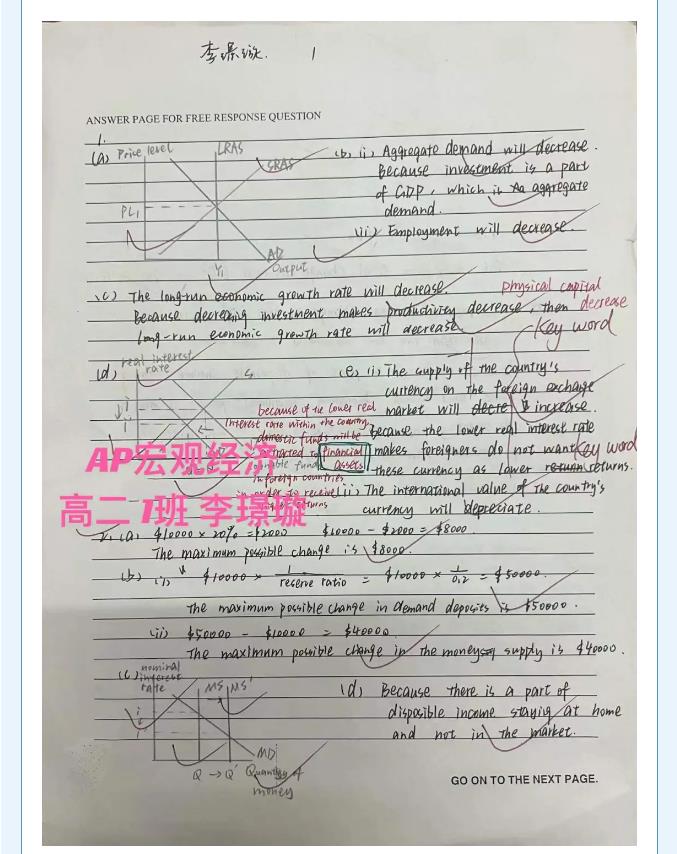 李璟璇. 1
ANSWER PAGE FOR FREE RESPONSE QUESTION
1.
(a) Price level
LRAS
SRAS
PL1
AD
Y1
Output
(b) (i) Aggregate demand will decrease.
Because investment is a part
of GDP, which is aggregate
demand.
(ii) Employment will decrease.
(c) The long-run economic growth rate will decrease.
Because decreasing investment makes productivity decrease, then decrease
long-run economic growth rate will decrease.
physical capital
key word
(d) real interest
rate
S
i
i'
(e) (i) The supply of the country's
currency on the foreign exchange
market will increase.
because the lower real interest rate
makes foreigners do not want
these currency as lower returns.
(ii) The international value of the country's
currency will depreciate.
key word
because of the lower real
interest rate within the country,
domestic funds will be
financial
assets
in foreign countries
in order to receive
returns
AP宏观经济
高二1班 李璟璇
2. (a) $10000 × 20% = $2000 $10000 - $2000 = $8000
The maximum possible change is $8000.
(b) (i) $10000 × 1/reserve ratio = $10000 × 1/0.2 = $50000.
The maximum possible change in demand deposits is $50000.
(ii) $50000 - $10000 = $40000.
The maximum possible change in the money supply is $40000.
(c) nominal
interest
rate
MS MS'
i
i'
MD
Q → Q' Quantity of
money
(d) Because there is a part of
disposible income staying at home
and not in the market.
GO ON TO THE NEXT PAGE.